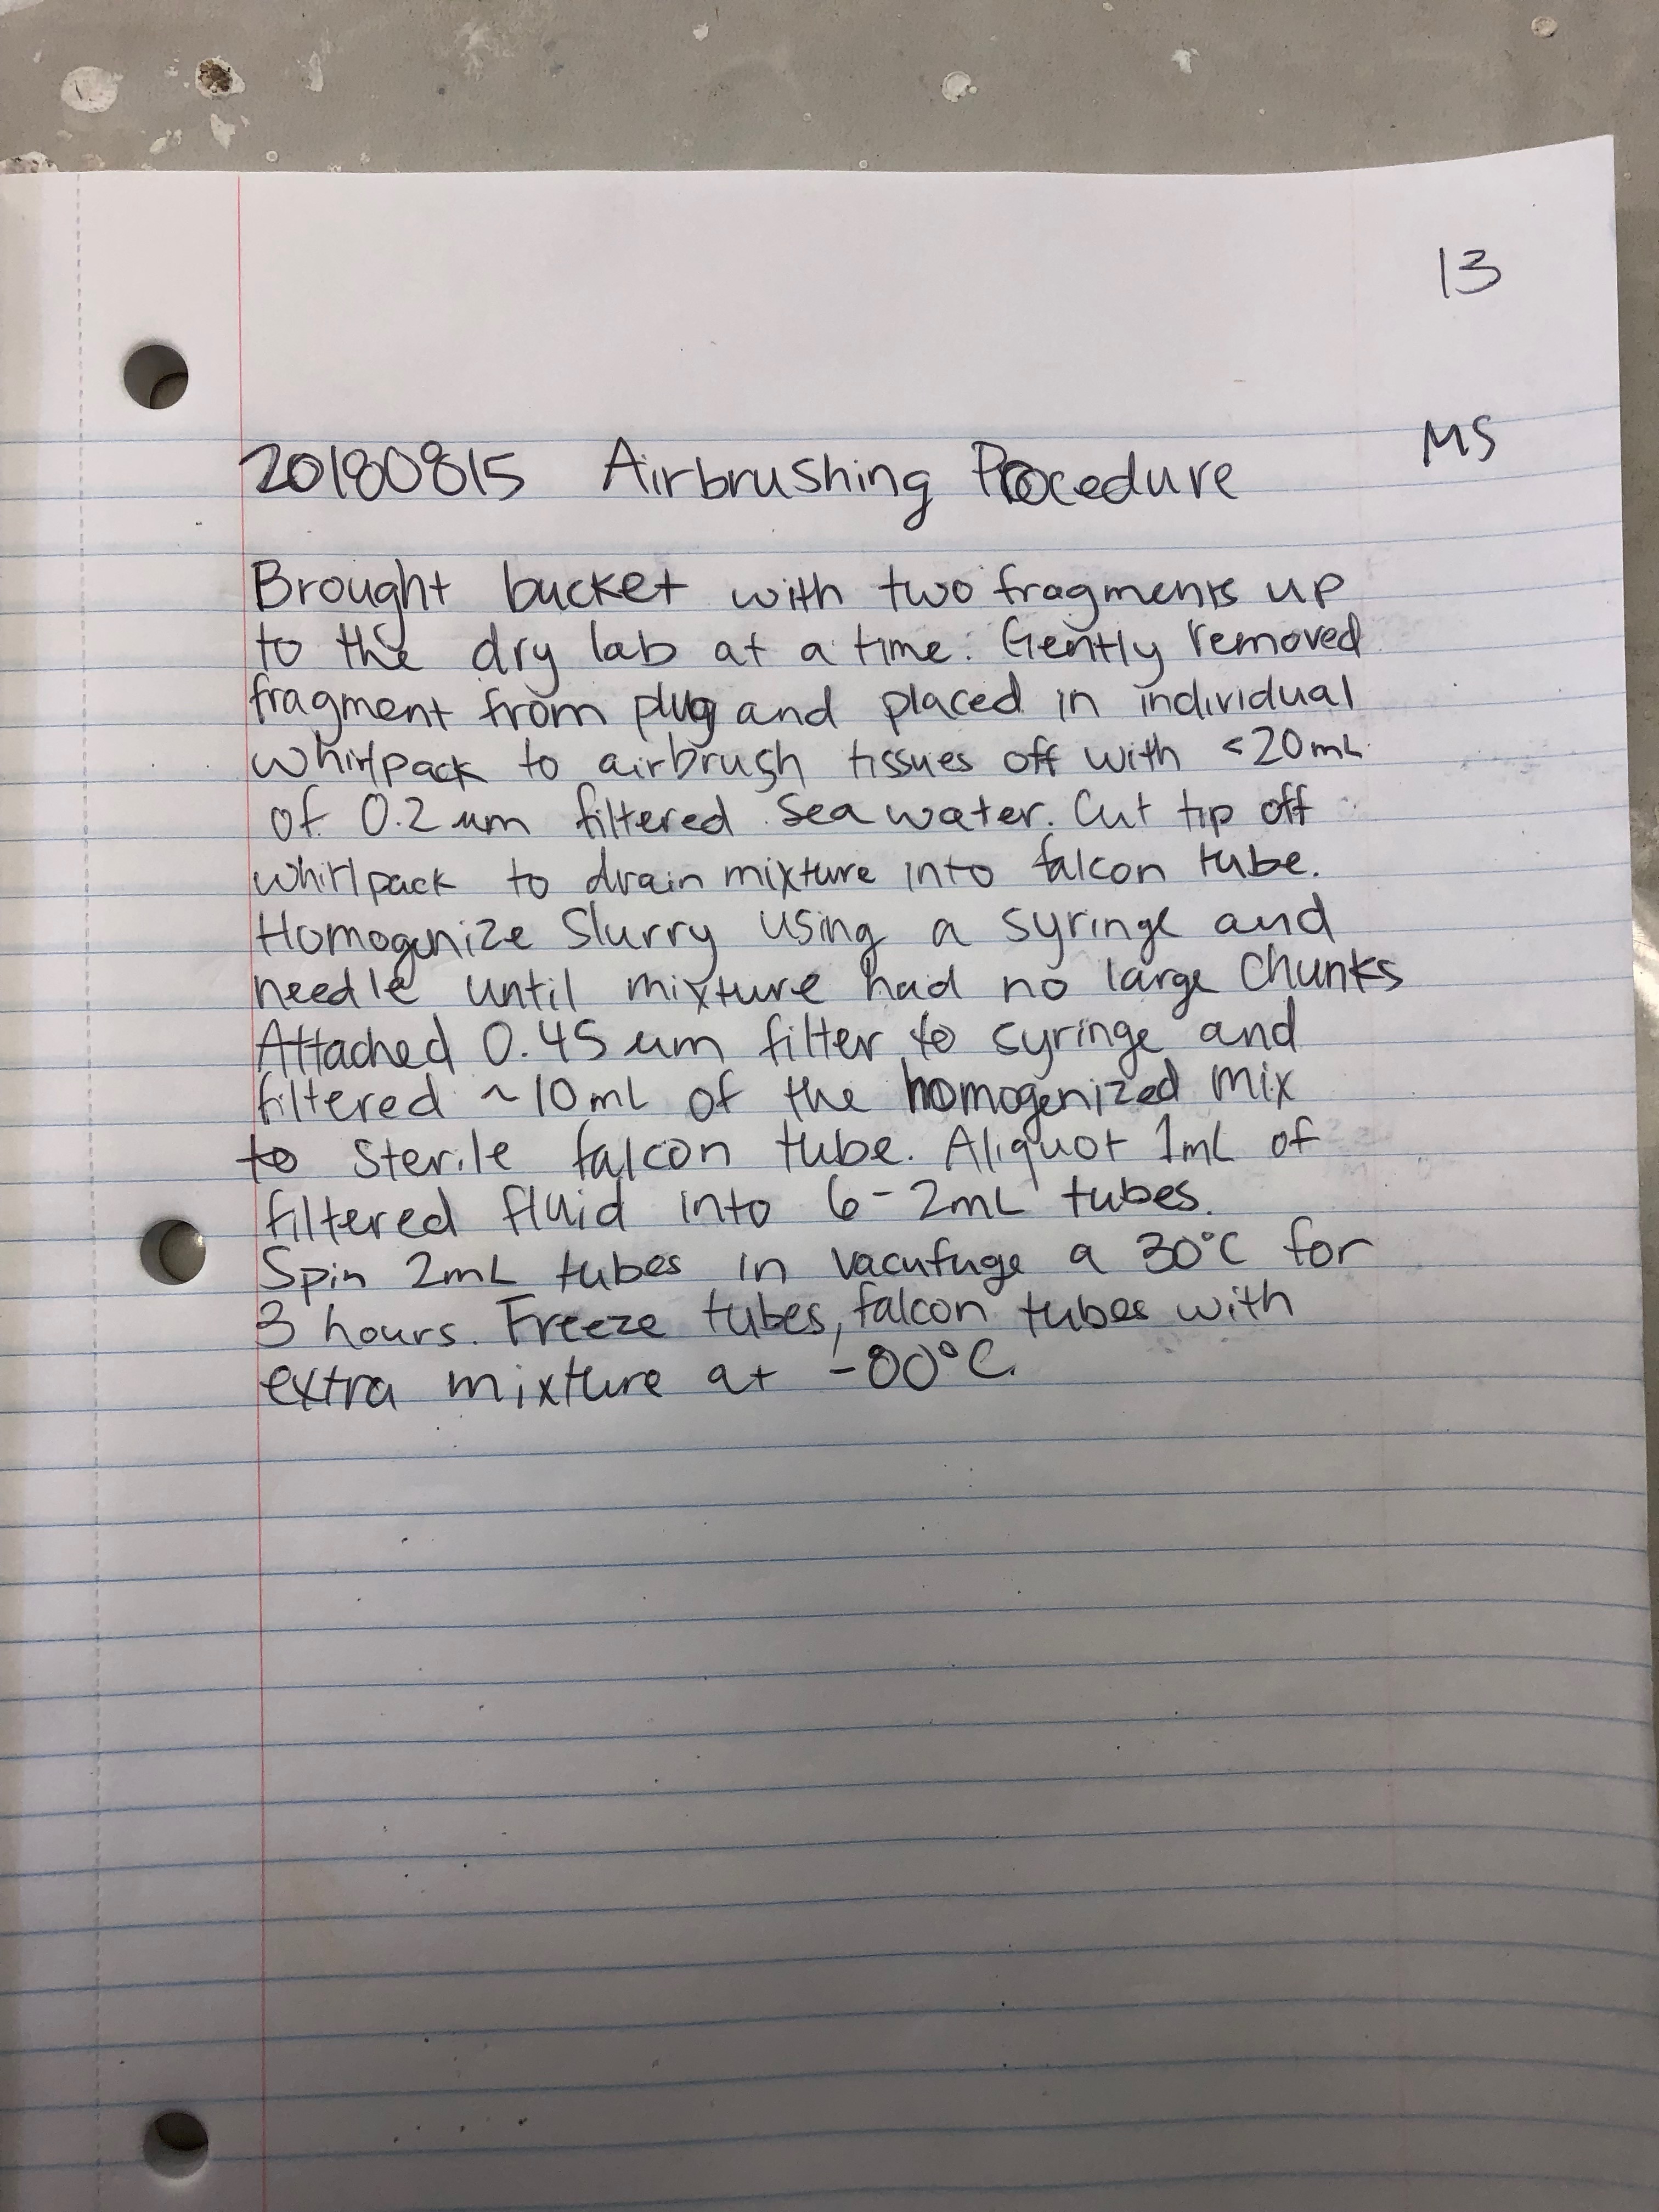 13
MS
20180815 Airbrushing Procedure
Brought bucket with two fragments up
to the dry lab at a time. Gently removed
fragment from plug and placed in individual
whirlpack to airbrush tissues off with <20mL
of 0.2 um filtered Sea water. Cut tip off
whirlpack to drain mixture into falcon tube.
Homogenize Slurry using a syringe and
needle until mixture had no large chunks
Attached 0.45 um filter to syringe and
filtered ~10mL of the homogenized mix
to sterile falcon tube. Aliquot 1mL of
filtered fluid into 6-2mL tubes.
Spin 2mL tubes in vacufuge a 30°C for
3 hours. Freeze tubes, falcon tubes with
extra mixture at -80°C.